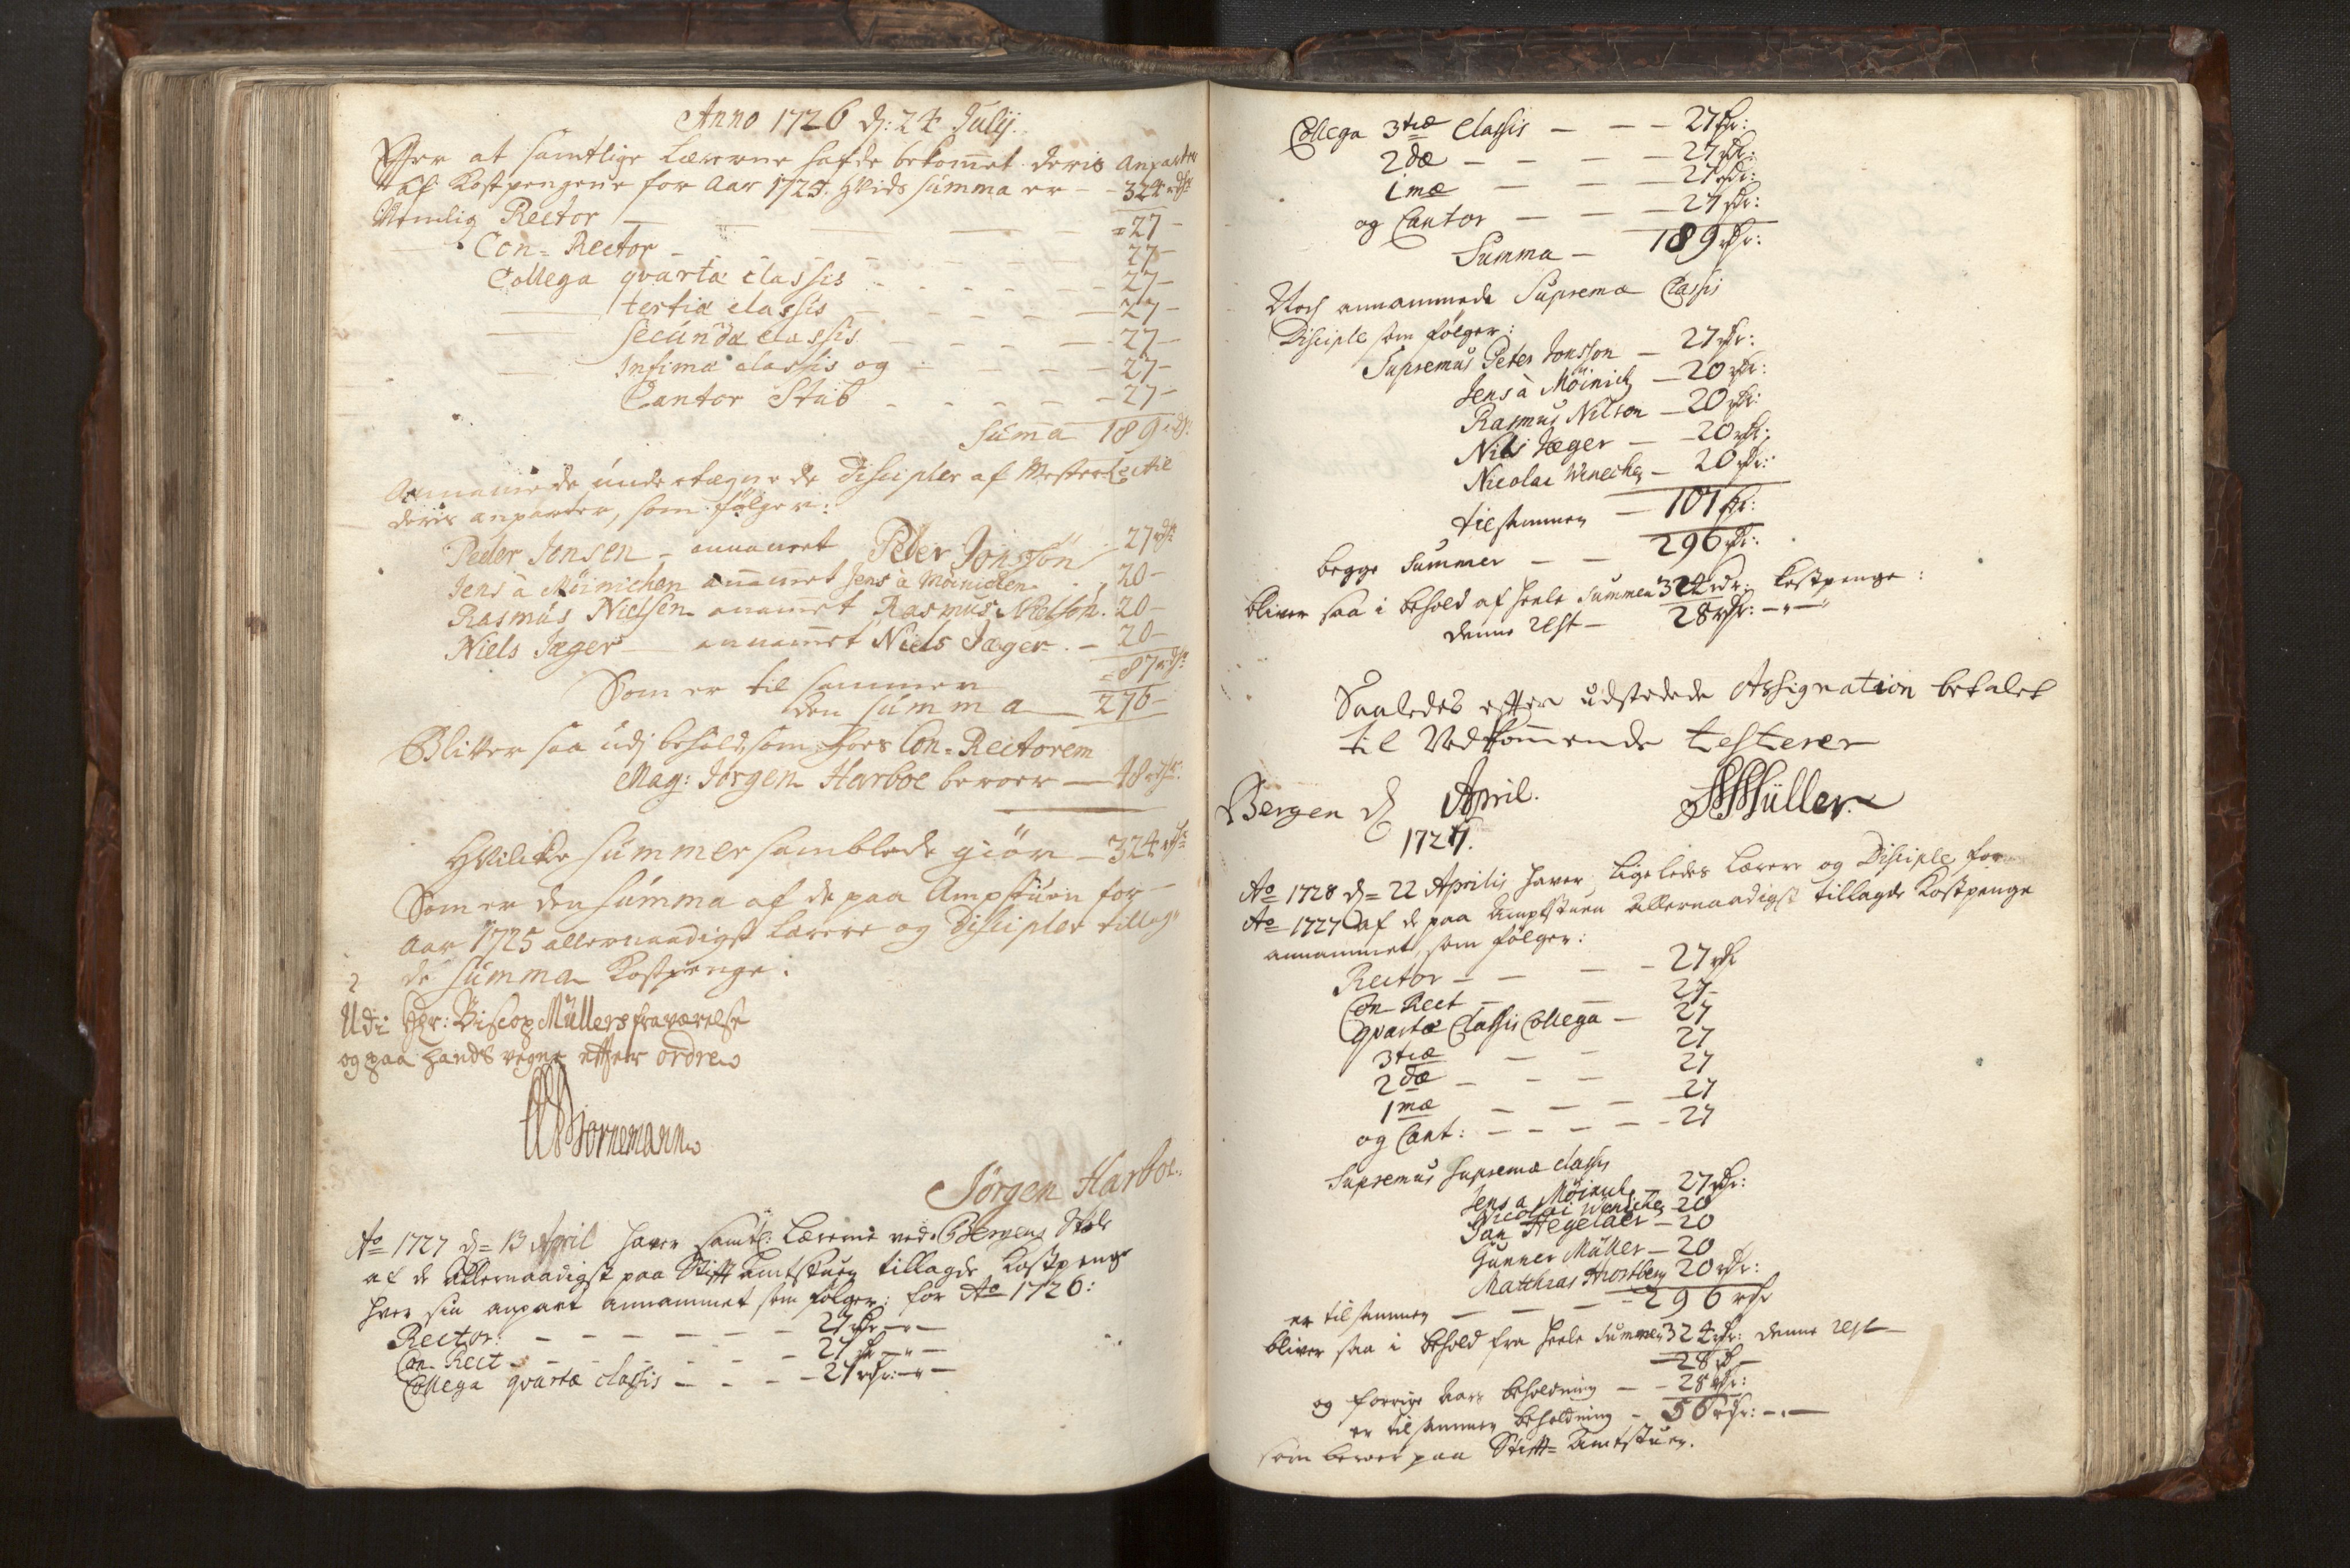 Anno 1726 d: 24 Julij.
Efter at samtlige Lærerne hafde bekom̅et deris Anparter
af Kostpengene for Aar 1725. hvis Summa er - - 324 rdr
Nemlig Rector - - - - 27 -
Con-Rector - - - - 27 -
Collega qvarta classis - - - - 27 -
tertiæ classis - - - - 27 -
secunda classis - - - - 27 -
Infima classis og - - - - 27 -
Cantor Stub - - - - 27 -
Sum̅a 189 rdr
Annamede undertægnede Discipler af Mester Lectie
deris anparter, som følger:
Peder Jonsen - annamet Peder Jonssøn 27 rdr
Jens à Möinichen an̅am̅et Jens à Möinichen . 20 -
Rasmus Nielsen anam̅et Rasmus Nielsøn . 20 -
Niels Jæger annam̅et Niels Jæger . - 20 -
Som er til sammen 87 rdr
den summa - 276 -
Blifver saa udj behold, som hoes Con-Rectorem
Mag: Jørgen Harboe beroer - 48 rdr.
Hvilcke Summer samblede giör - 324 rdr
Som er den Summa af de paa Ampstuen for
Aar 1725 allernaadigst Lærere og Discipler tillag-
de Summa Kostpenge.
Udi Hr: Biscop Müllers fraværelse
og paa hands vegne efter ordre
Bornemann
Jörgen Harboe.
Ao 1727 d= 13 April haver samtl: Lærerne ved Bergens Skole
af de allernaadigst paa Stiftamtstuen tillagde Kostpenge
hver sin anpart annammet som følger: for Ao 1726:
Rector: - - - - 27 rdr - -
Con-Rect - - - - 27 rdr - -
Collega qvartæ classis - - - - 27 rdr: - -
Collega 3tiæ Classis - - - 27 rdr:
2dæ - - - - 27 rdr:
1mæ - - - 27 rdr:
og Cantor - - - 27 rdr:
Summa - 189 rdr:
Noch annammede Supremæ Classis
Disciple som følger:
Supremus Peter Jonsson - 27 rdr:
Jens à Möinich - 20 rdr:
Rasmus Nilson - 20 rdr:
Nils Jæger - 20 rdr:
Nicolai Wenecke - 20 rdr:
tilsammen - 107 rdr:
begge Summer - - 296 rdr:
bliver saa i behold af heele Summen 324 rdr: Kostpenge:
denne Rest - 28 rdr: - -
Saaledes efter udstedede Assignation betalet
til Vedkom̅ende testerer
Bergen d April. Müller
1727.
Ao 1728 d= 22 Aprilis haver ligeledes Lærere og Disciple for
Ao 1727 af de paa Amptstuen Allernaadigst tillagde Kostpenge
annammet, som følger:
Rector - - - - 27 rdr
Con-Rect - - 27 -
qvartæ Classis Collega - 27
3tiæ - - 27
2dæ - - - 27
1mæ - - - 27
og Cant: - - - - - 27
Supremus Supremæ classis
Jens a Möinich - 27 rdr:
Nicolai Wenecke 20
Jan Hegelaer - 20
Gunner Müller - 20
Matthias 20 rdr:
er tilsammen - - - - 296 rdr
bliver saa i behold fra heele Summen 324 rdr: denne Rest
- 28 rdr -
og forrige Aars beholdning - - 28 rdr:
er tilsammen beholdning - 56 rdr: - -
som beroer paa Stift-Amtstuen.